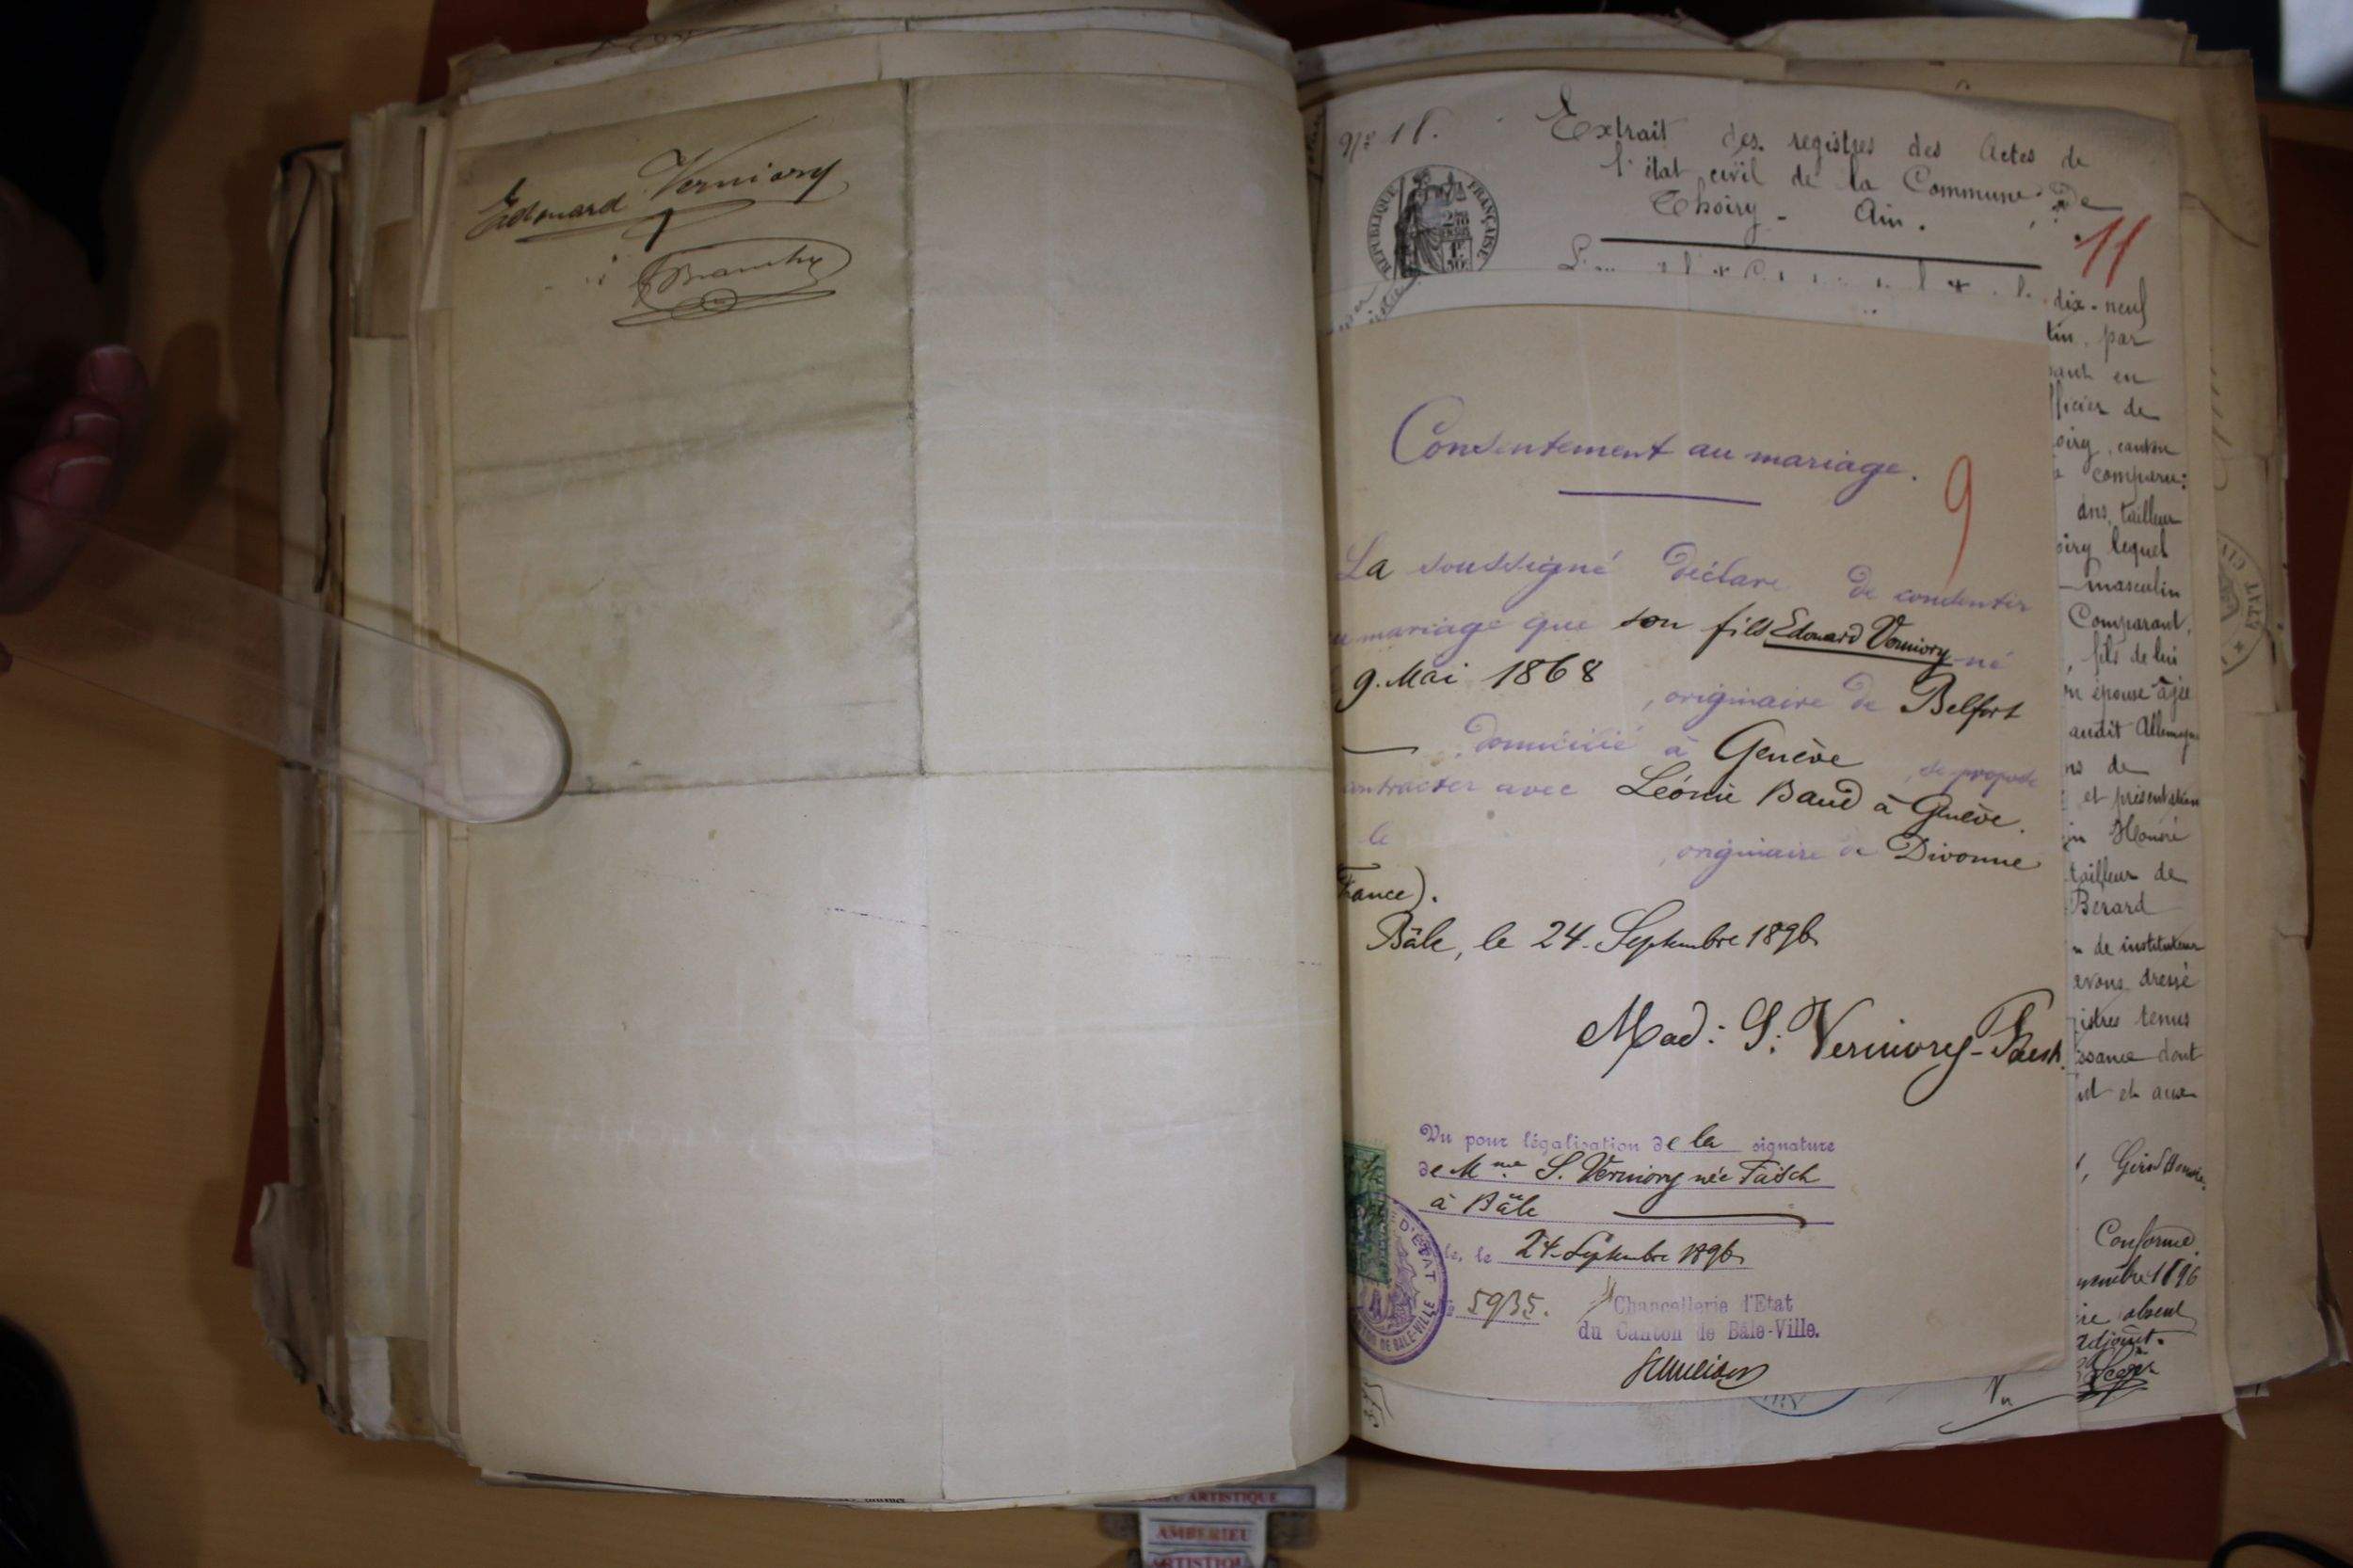 Edouard Verniory
N° 18.
Extrait des registres des Actes de
l'état civil de la Commune de
Thoiry - Ain.
RÉPUBLIQUE FRANÇAISE
11
dix-neuf
tin, par
en
officier de
oiry, canton
comparu:
ans, tailleur
oiry lequel
masculin
Comparant,
, fils de lui
épouse âgée
audit Allemogne
de
et présentation
Honoré
tailleur de
Bérard
de instituteur
avons dressé
istres tenus
ssance dont
et
Conforme
embre 1896
absent
Adjoint.
Vu
Consentement au mariage.
9
La soussigné déclare de consentir
au mariage que son fils Edouard Verniory né
9. Mai 1868, originaire de Belfort
domicilié à Genève, se propose
contracter avec Léonie Baud à Genève.
le , originaire de Divonne
France).
Bâle, le 24. Septembre 1896
Mad: S: Verniory-Faesch
Vu pour légalisation de la signature
de Mme. S. Verniory née Fäsch
à Bâle
le, le 24. Septembre 1896
5935.
Chancellerie d'Etat
du Canton de Bâle-Ville.
D'ÉTAT
DE BALE-VILLE
ARTISTIQUE
AMBERIEU
ARTISTIQUE